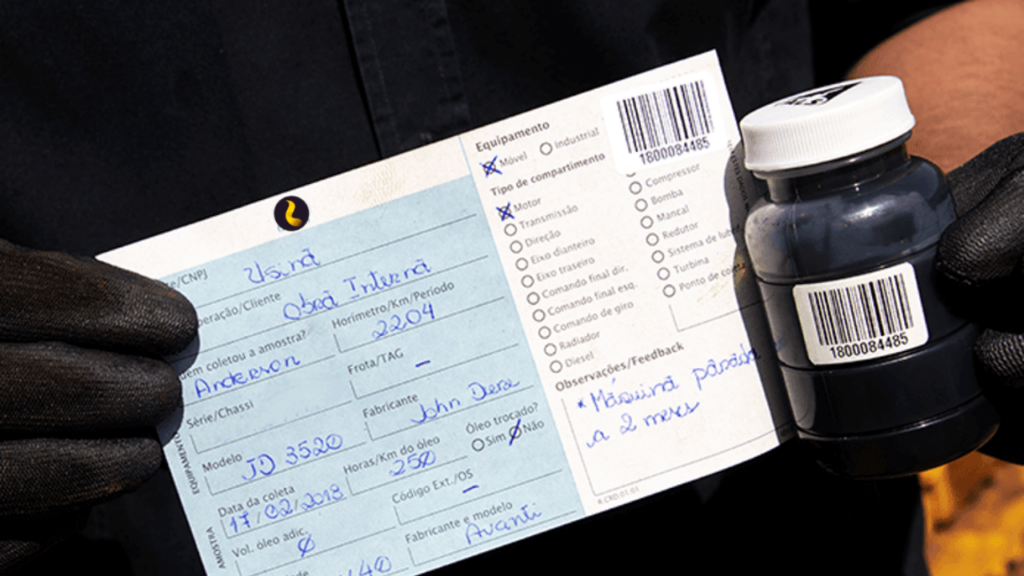 te/CNPJ
Usina
peração/Cliente
Obra Interna
em coletou a amostra?
Anderson
Horímetro/Km/Período
2204
Série/Chassi
Frota/TAG
–
Modelo
JD 3520
Fabricante
John Dere
Data da coleta
17/02/2018
Horas/Km do óleo
250
Óleo trocado?
Sim Não
Vol. óleo adic.
Ø
Código Ext./OS
–
Fabricante e modelo
Avanti
40
EQUIPAMENTO
AMOSTRA
Equipamento
Móvel Industrial
Tipo de compartimento
Motor
Transmissão
Direção
Eixo dianteiro
Eixo traseiro
Comando final dir.
Comando final esq.
Comando de giro
Radiador
Diesel
Compressor
Bomba
Mancal
Redutor
Sistema de lub
Turbina
Ponto de co
1800084485
Observações/Feedback
* Máquina parada
a 2 meses
1800084485